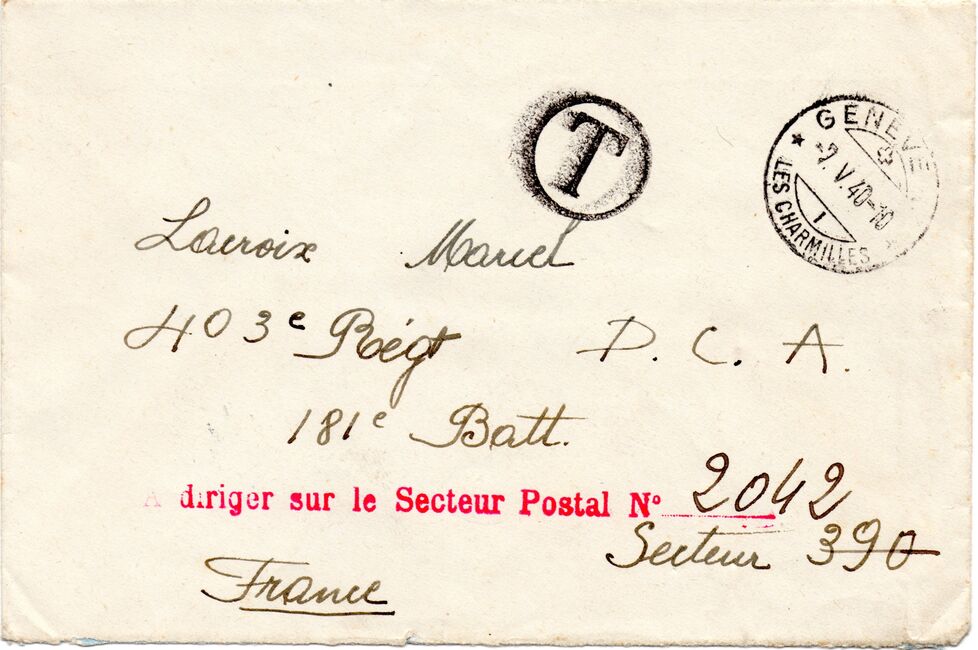 T
GENÈVE
-2.V.40-10
1
LES CHARMILLES
Lacroix Marcel
403e Régt D. C. A.
181e Batt.
A diriger sur le Secteur Postal N° 2042
Secteur 390
France